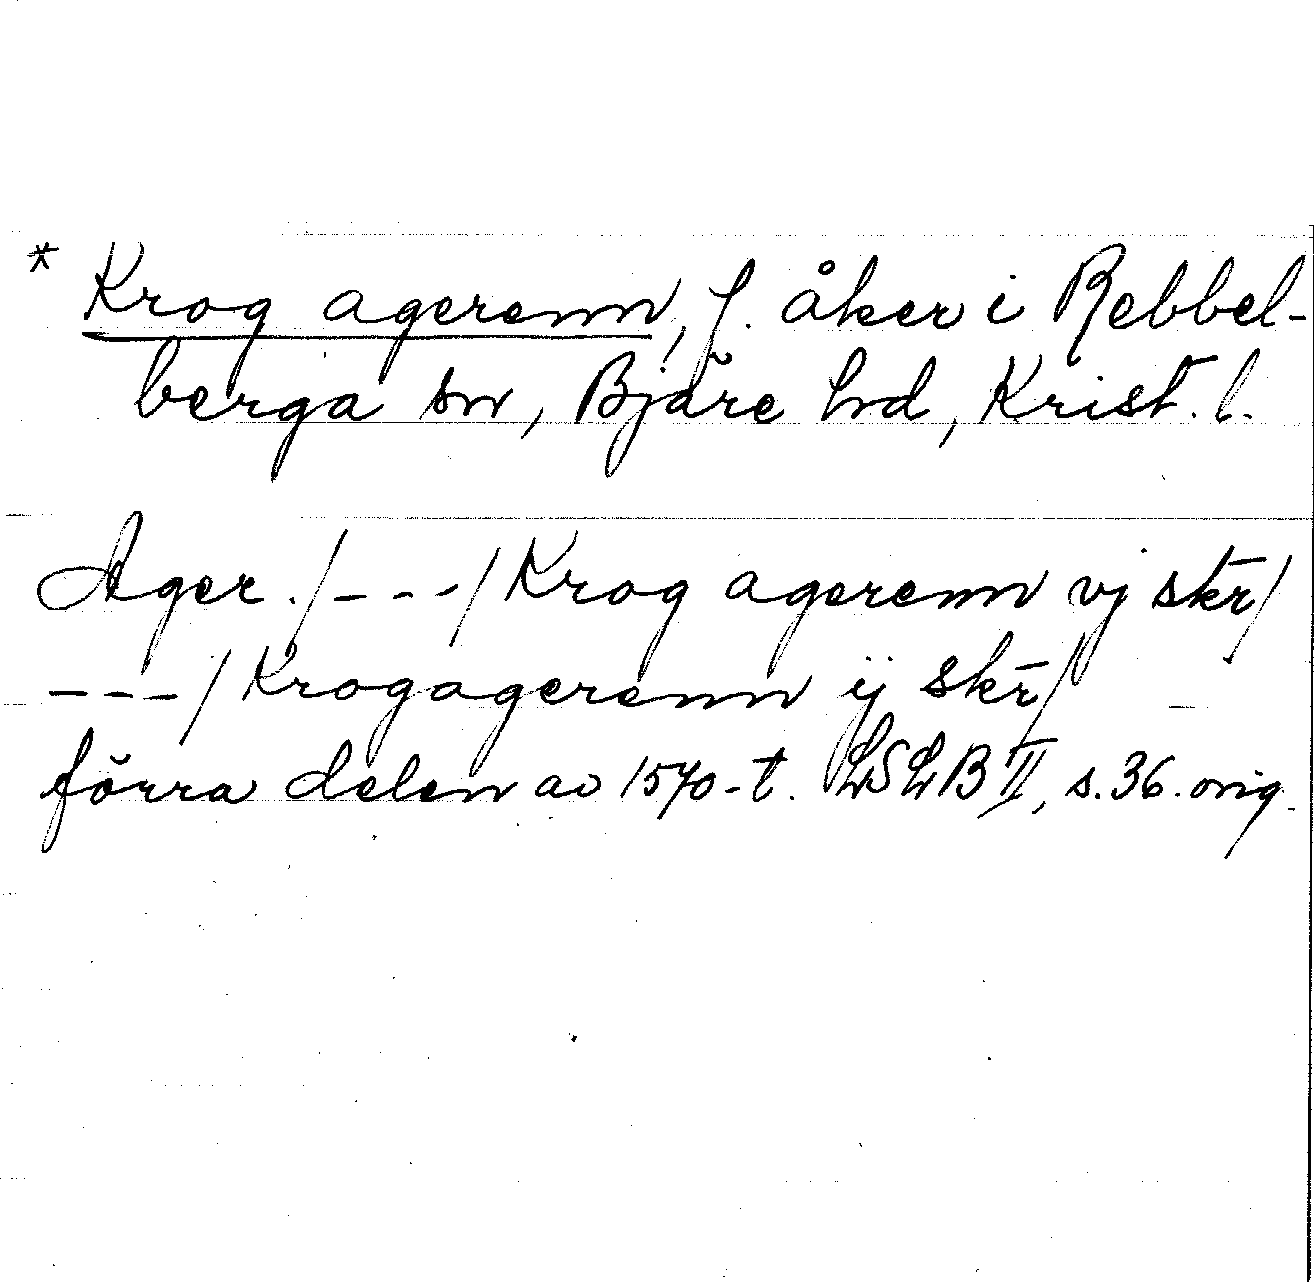 * Krog agerenn, f. åker i Rebbel-
berga sn, Bjäre hd, Krist. l.
Ager. /---/ Krog agerenn vj skr̄/
---/ Krogagerenn ij skr̄/
förra delen av 1570-t. LSLB II, s. 36. orig.